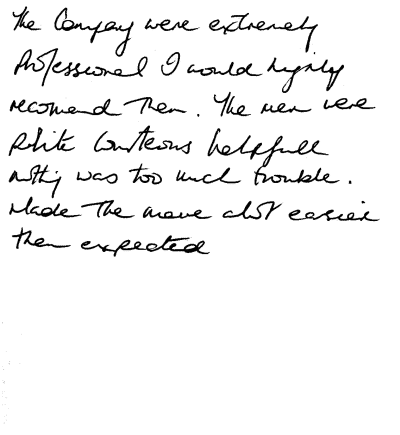 The Company were extremely
Professional I would highly
recomend Them. The men were
Polite Courteous helpfull
nothing was too much trouble.
Made The move alot easier
then expected